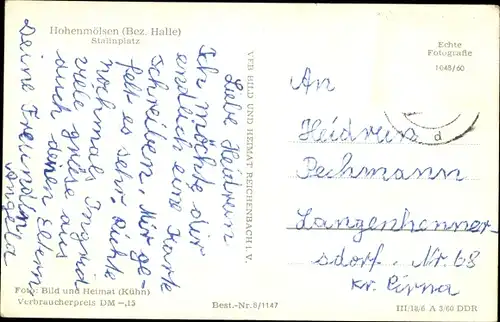 Hohenmölsen (Bez. Halle)
Stalinplatz
Liebe Heidrun
Ich möchte dir
endlich eine Karte
schreiben. Mir ge-
felt es sehr. Richte
nochmals Ingrid
viele grüse aus
auch deinen Eltern
Deine Freundin
Angela
Foto: Bild und Heimat (Kühn)
Verbraucherpreis DM -,15
VEB BILD UND HEIMAT REICHENBACH i. V.
Best.-Nr. 8/1147
Echte
Fotografie
1048/60
d
An
Heidrun
Pechmann
Langenhenner-
sdorf. Nr. 68
Kr. Pirna
III/18/6 A 3/60 DDR